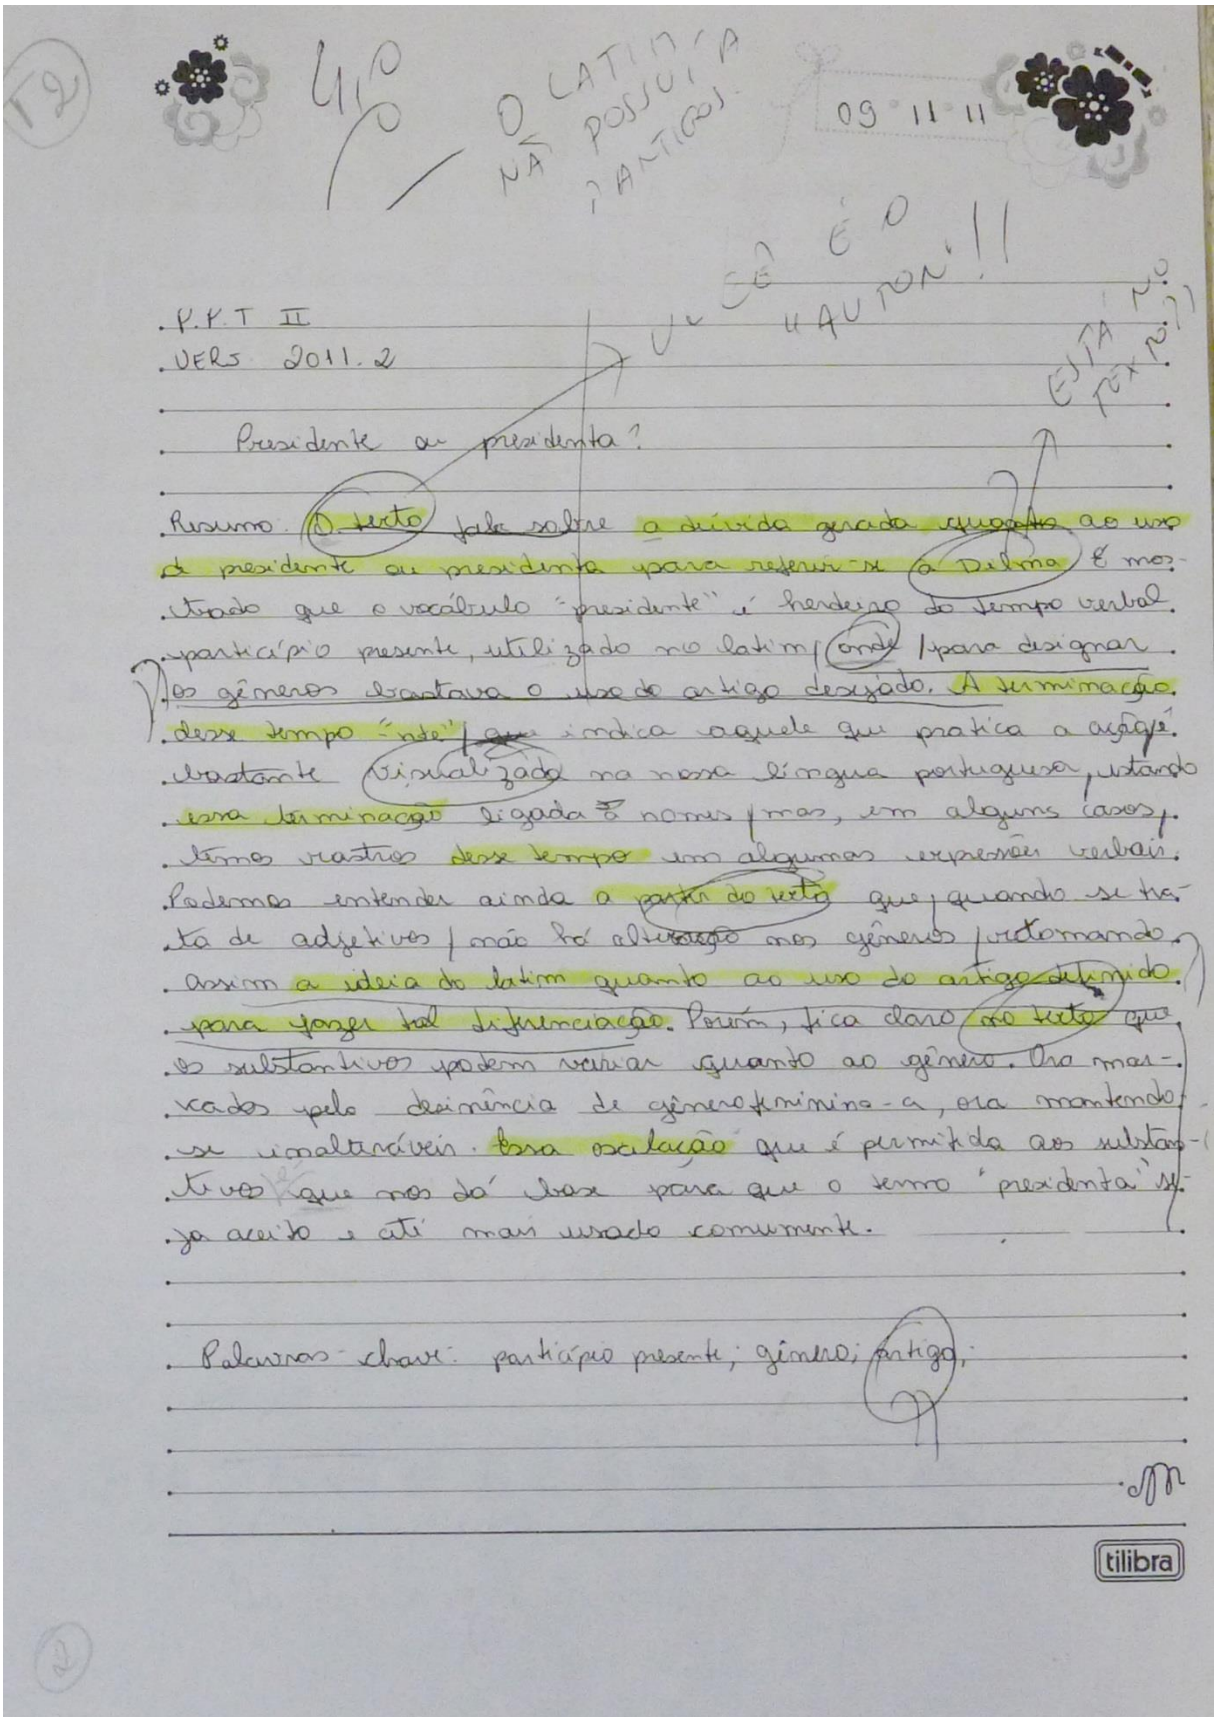 T2
4,0
O LATIM
NÃO POSSUÍA
ARTIGOS.
09 11 11
VOCÊ É O
"AUTOR"!!
ESTÁ NO
TEXTO??
P.P.T II
VERS 2011.2
Presidente ou presidenta?
Resumo: O texto fala sobre a dúvida gerada quanto ao uso
de presidente ou presidenta para referir-se a Dilma. É mos-
trado que o vocábulo "presidente" é herdeiro do tempo verbal
particípio presente, utilizado no latim, onde para designar
os gêneros bastava o uso do artigo desejado. A terminação
desse tempo "nte" que indica aquele que pratica a ação é
bastante visualizada na nossa língua portuguesa, estando
essa terminação ligada a nomes mas, em alguns casos,
temos rastros desse tempo em algumas expressões verbais.
Podemos entender ainda a partir do texto que, quando se tra-
ta de adjetivos, não há alteração nos gêneros, retomando
assim a ideia do latim quanto ao uso do artigo definido
para fazer tal diferenciação. Porém, fica claro no texto que
os substantivos podem variar quanto ao gênero. Ora mar-
cados pela desinência de gênero feminino -a, ora mantendo-
se inalteráveis. Essa oscilação que é permitida aos substan-
tivos que nos dá base para que o termo "presidenta" se-
ja aceito e até mais usado comumente.
Palavras-chave: particípio presente; gênero; artigo;
tilibra
2